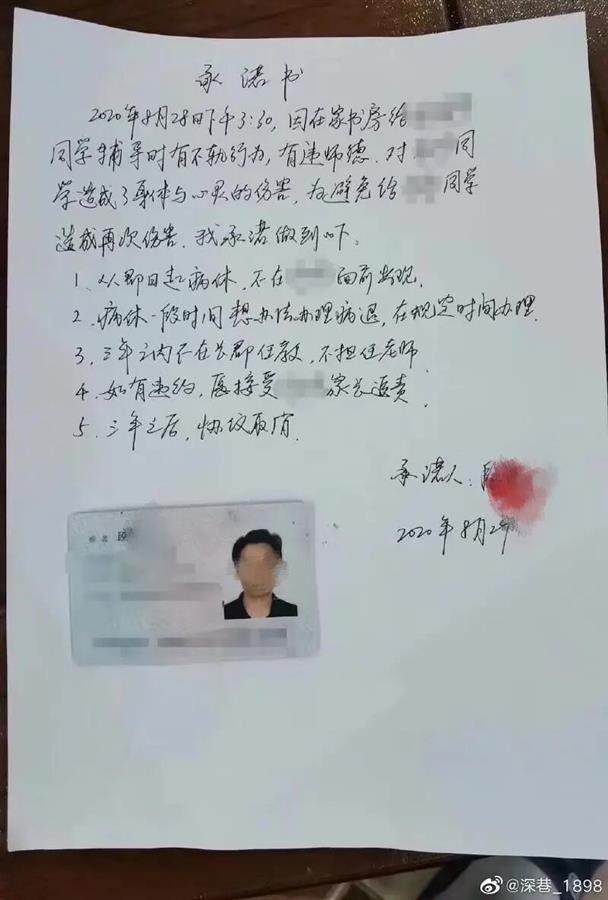 承诺书
2020年8月28日下午3:30,因在家书房给
同学辅导时有不轨行为,有违师德.对 同
学造成了身体与心灵的伤害,为避免给 同学
造成再次伤害.我承诺做到以下.
1、从即日起病休,不在 面前出现.
2、病休一段时间想办法办理病退,在规定时间办理.
3、三年之内不在长郡任教,不担任老师.
4、如有违约,愿接受 家长追责.
5、三年之后,协议取消.
承诺人:段
2020年8月2
姓名 段
@深巷_1898